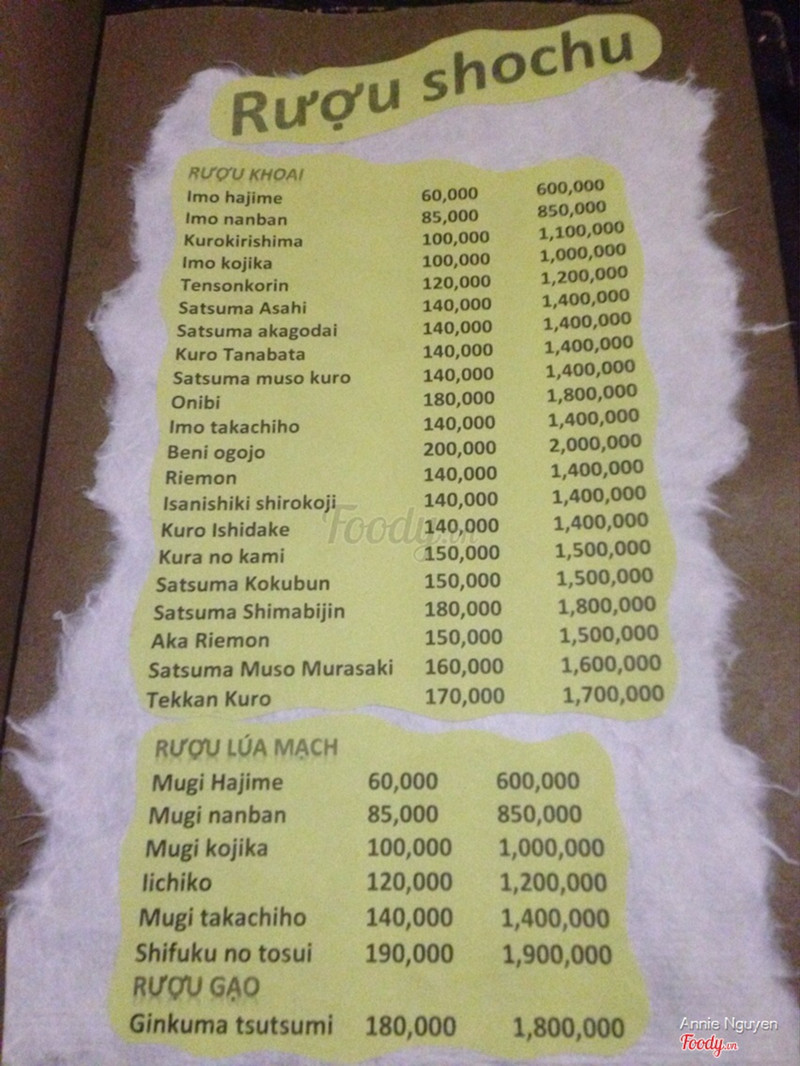 Rượu shochu
RƯỢU KHOAI
Imo hajime 60,000 600,000
Imo nanban 85,000 850,000
Kurokirishima 100,000 1,100,000
Imo kojika 100,000 1,000,000
Tensonkorin 120,000 1,200,000
Satsuma Asahi 140,000 1,400,000
Satsuma akagodai 140,000 1,400,000
Kuro Tanabata 140,000 1,400,000
Satsuma muso kuro 140,000 1,400,000
Onibi 180,000 1,800,000
Imo takachiho 140,000 1,400,000
Beni ogojo 200,000 2,000,000
Riemon 140,000 1,400,000
Isanishiki shirokoji 140,000 1,400,000
Kuro Ishidake 140,000 1,400,000
Kura no kami 150,000 1,500,000
Satsuma Kokubun 150,000 1,500,000
Satsuma Shimabijin 180,000 1,800,000
Aka Riemon 150,000 1,500,000
Satsuma Muso Murasaki 160,000 1,600,000
Tekkan Kuro 170,000 1,700,000
RƯỢU LÚA MẠCH
Mugi Hajime 60,000 600,000
Mugi nanban 85,000 850,000
Mugi kojika 100,000 1,000,000
Iichiko 120,000 1,200,000
Mugi takachiho 140,000 1,400,000
Shifuku no tosui 190,000 1,900,000
RƯỢU GẠO
Ginkuma tsutsumi 180,000 1,800,000
Foody.vn
Annie Nguyen
Foody.vn